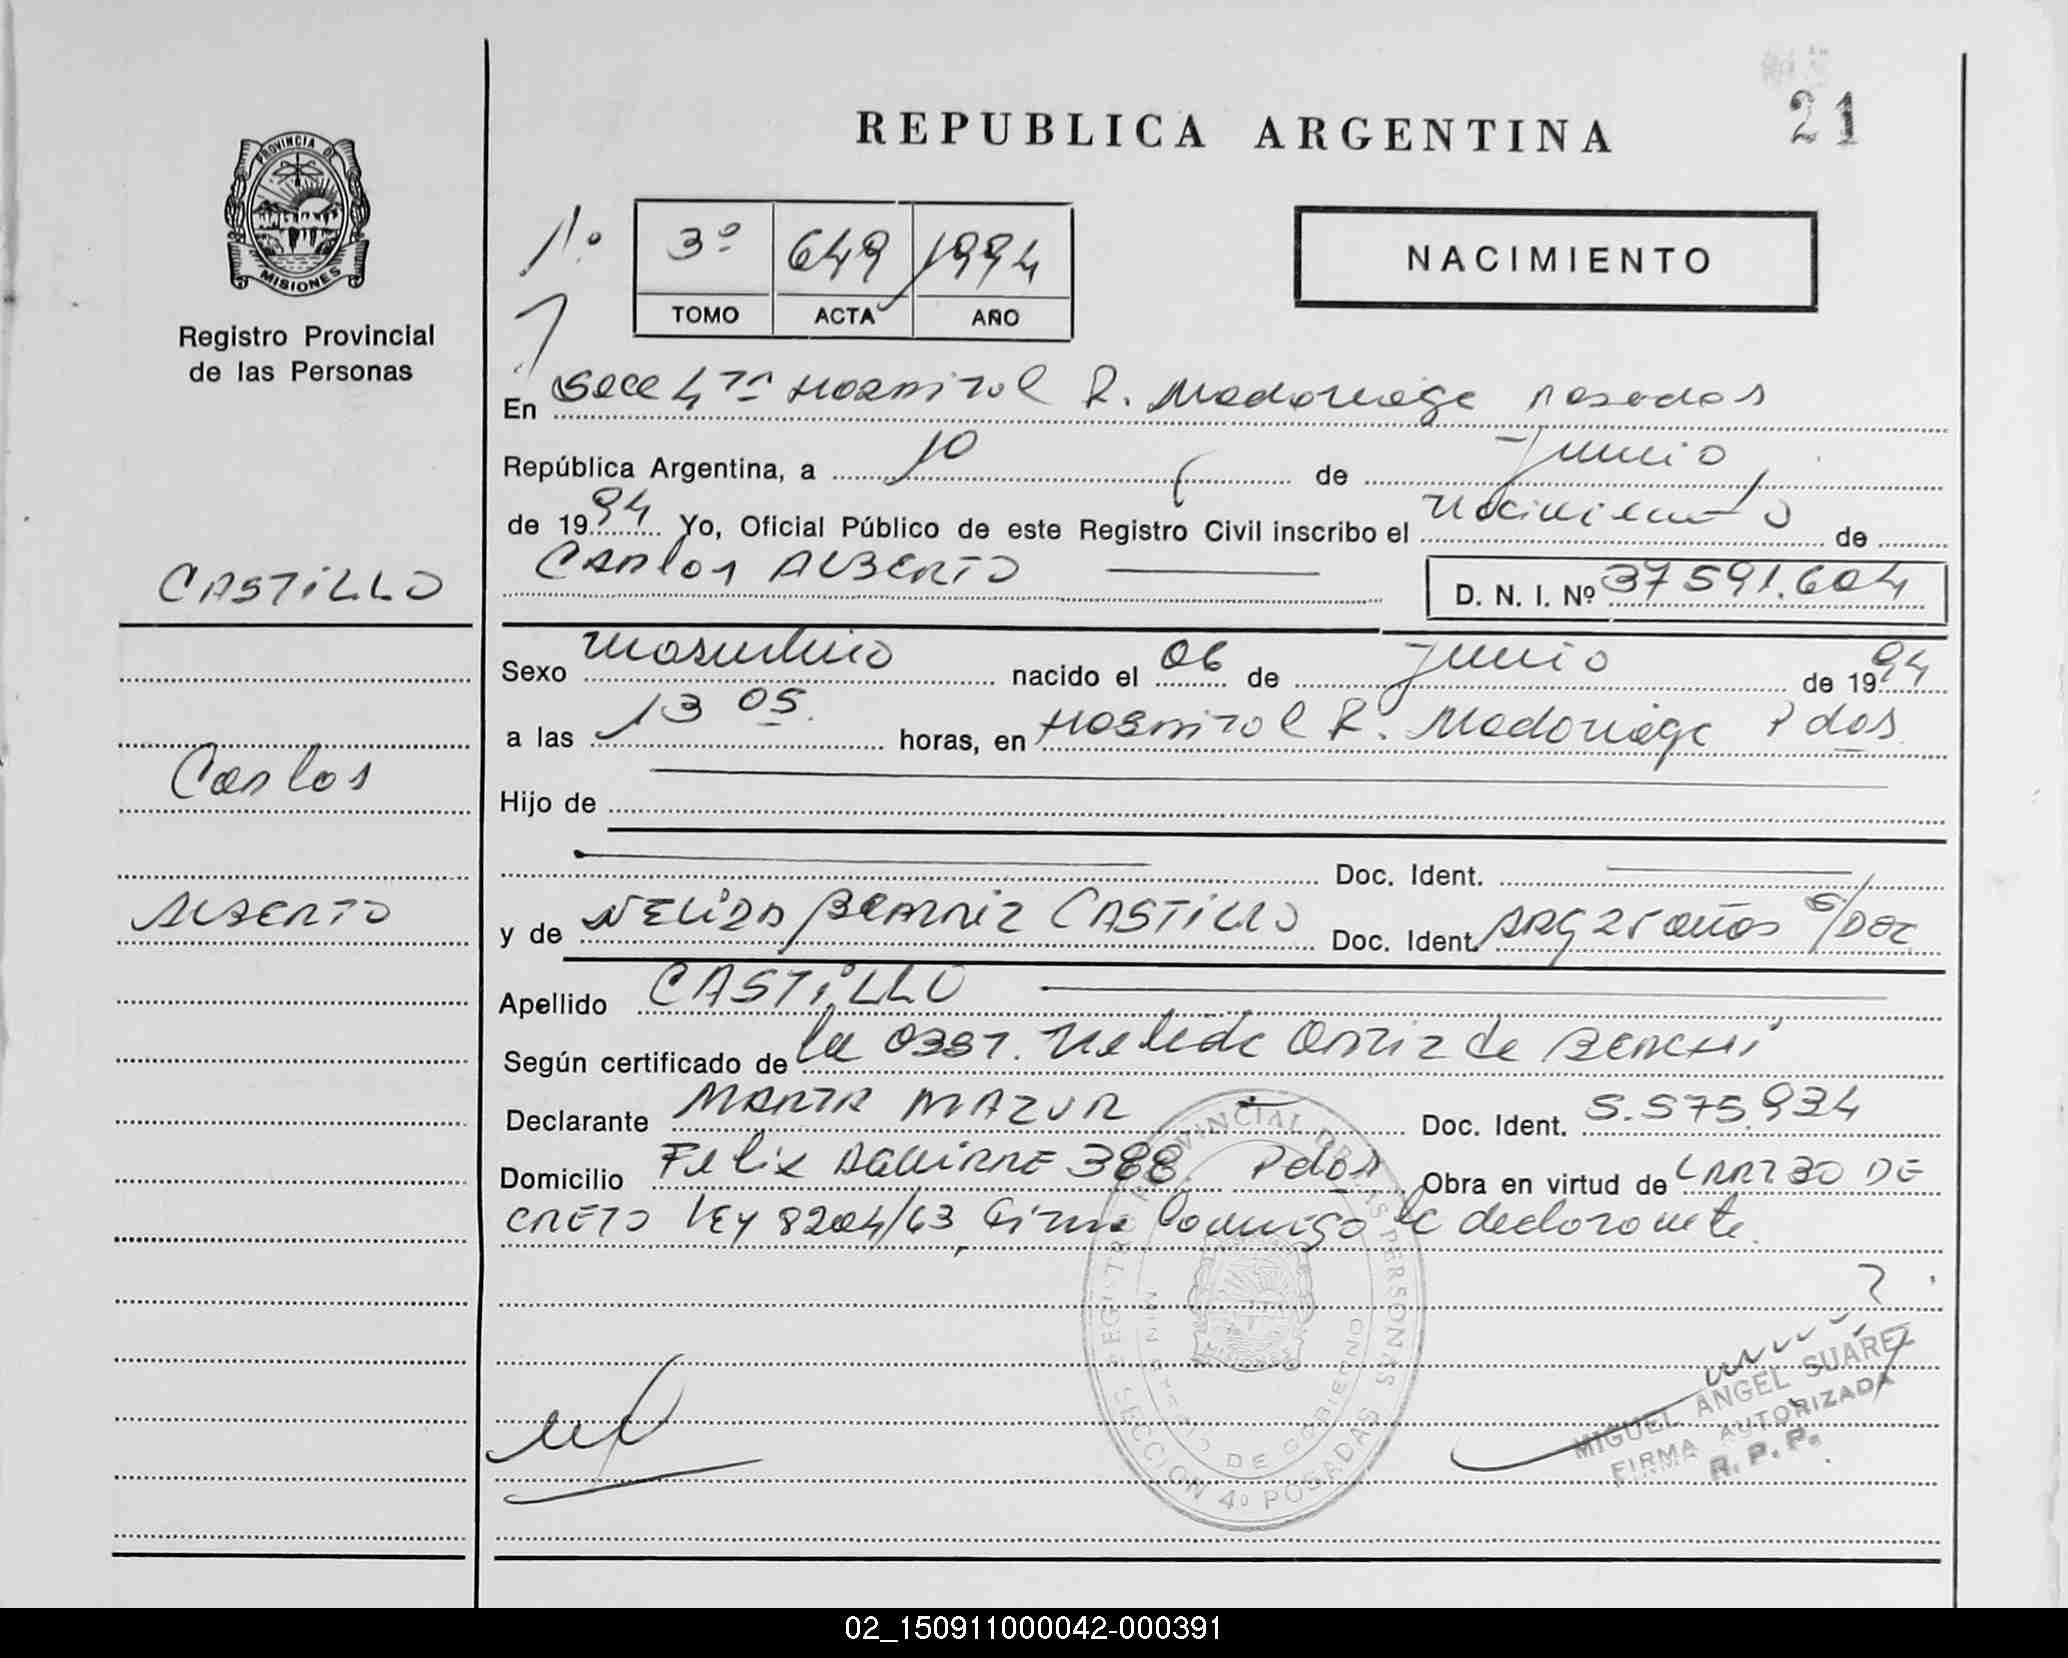 REPUBLICA ARGENTINA
21
PROVINCIA DE
MISIONES
Registro Provincial
de las Personas
1º
3º 649 1994
TOMO ACTA AÑO
NACIMIENTO
En Secc 4ta Hospital R. Madariaga Posadas
República Argentina, a 10 de Junio
de 1994 Yo, Oficial Público de este Registro Civil inscribo el Nacimiento de
CASTILLO
Carlos ALBERTO
D. N. I. Nº 37591.604
Sexo Masculino nacido el 06 de Junio de 1994
a las 13 05. horas, en Hospital R. Madariaga Pdas
Carlos
Hijo de
Doc. Ident.
ALBERTO
y de NELIDA BEATRIZ CASTILLO Doc. Ident. ARG 25 años S/DOC
Apellido CASTILLO
Según certificado de la OBST. Nelida Ortiz de
Declarante MARTA MAZUR Doc. Ident. 5.575.934
Domicilio Felix AGUIRRE 388 Pdas Obra en virtud de L ART 30 DE
CRETO LEY 8204/63 Firma Conmigo la declarante.
REGISTRO PROVINCIAL DE LAS PERSONAS
MINISTERIO DE GOBIERNO
MISIONES
SECCION 4º POSADAS
MIGUEL ANGEL SUAREZ
FIRMA AUTORIZADA
R. P. P.
02_150911000042-000391